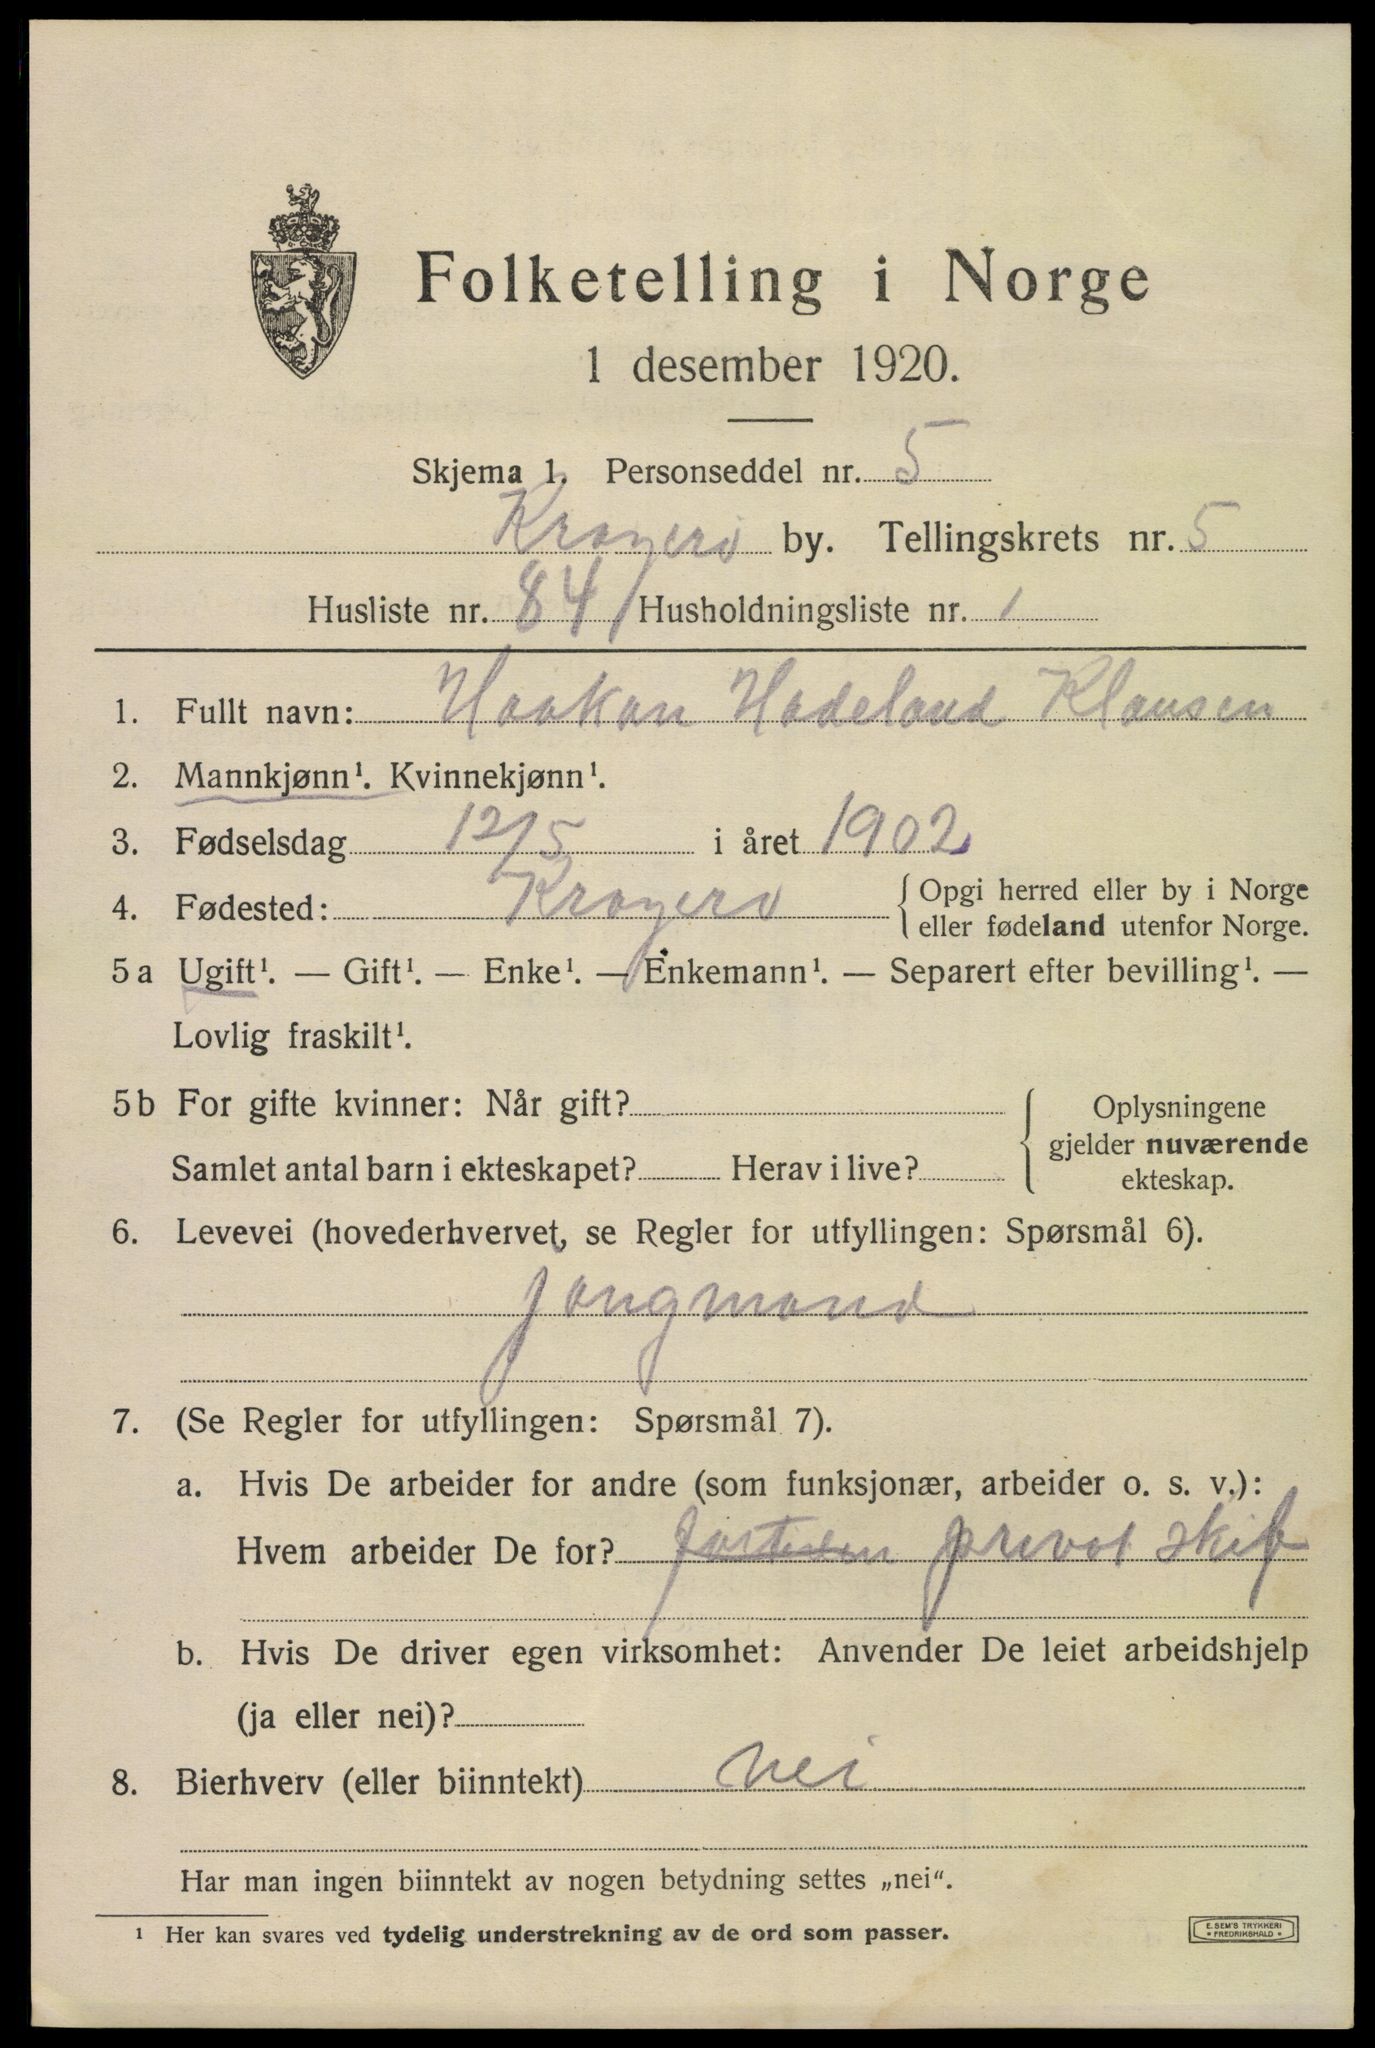 Folketelling i Norge
1 desember 1920.
Skjema 1. Personseddel nr. 5
Kragerø by. Tellingskrets nr. 5
Husliste nr. 84 / Husholdningsliste nr. 1
1. Fullt navn: Haakan Hadeland Klausen
2. Mannkjønn¹. Kvinnekjønn¹.
3. Fødselsdag 12/5 i året 1902
4. Fødested: Kragerø { Opgi herred eller by i Norge
eller fødeland utenfor Norge.
5 a Ugift¹. — Gift¹. — Enke¹. — Enkemann¹. — Separert efter bevilling¹. —
Lovlig fraskilt¹.
5 b For gifte kvinner: Når gift?
Samlet antal barn i ekteskapet? Herav i live?
Oplysningene
gjelder nuværende
ekteskap.
6. Levevei (hovederhvervet, se Regler for utfyllingen: Spørsmål 6).
jongmand
7. (Se Regler for utfyllingen: Spørsmål 7).
a. Hvis De arbeider for andre (som funksjonær, arbeider o. s. v.):
Hvem arbeider De for? privat skib
b. Hvis De driver egen virksomhet: Anvender De leiet arbeidshjelp
(ja eller nei)?
8. Bierhverv (eller biinntekt) nei
Har man ingen biinntekt av nogen betydning settes „nei“.
¹ Her kan svares ved tydelig understrekning av de ord som passer.
E. SEM'S TRYKKERI
• FREDRIKSHALD •